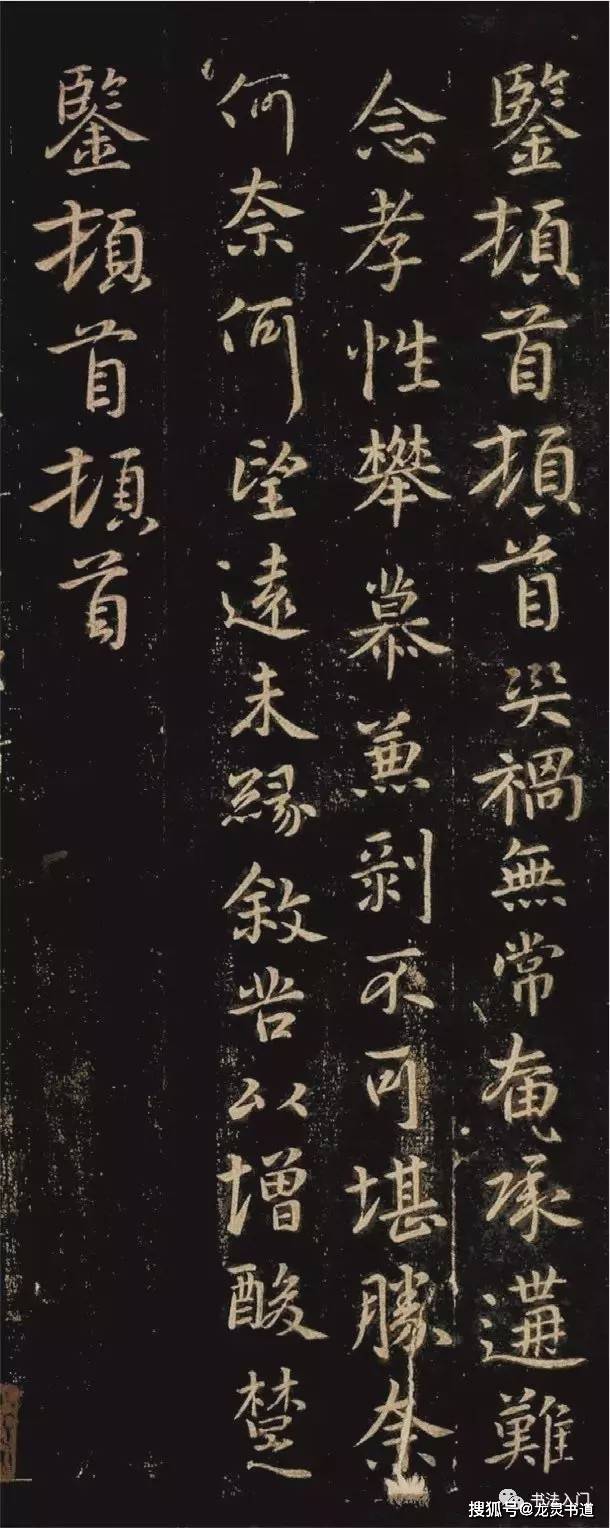 鑒頓首頓首災禍無常奄承遘難
念孝性攀慕兼剥不可堪勝奈
何奈何望遠未緣敘苦以增酸楚
鑒頓首頓首
书法入门
搜狐号@龙灵书道